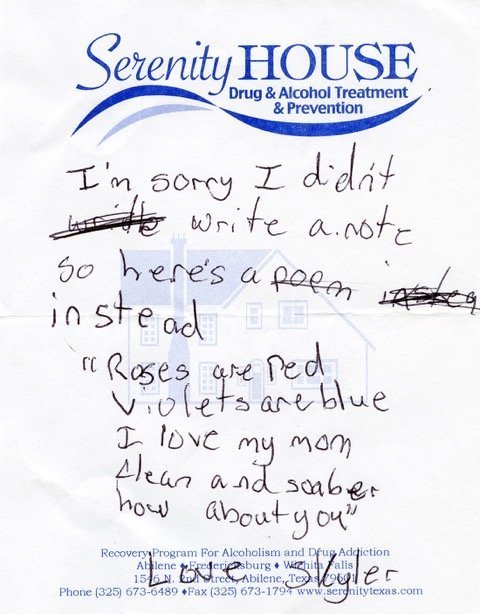 Serenity HOUSE
Drug & Alcohol Treatment
& Prevention
I'm sorry I didn't
write write a note
so here's a poem instea
instead
"Roses are Red
Violets are blue
I love my mom
clean and soaber
how about you"
Recovery Program For Alcoholism and Drug Addiction
Abilene ♦ Fredericksburg ♦ Wichita Falls
Love Skyler
1546 N. 2nd Street, Abilene, Texas 79601
Phone (325) 673-6489 ♦ Fax (325) 673-1794 www.serenitytexas.com